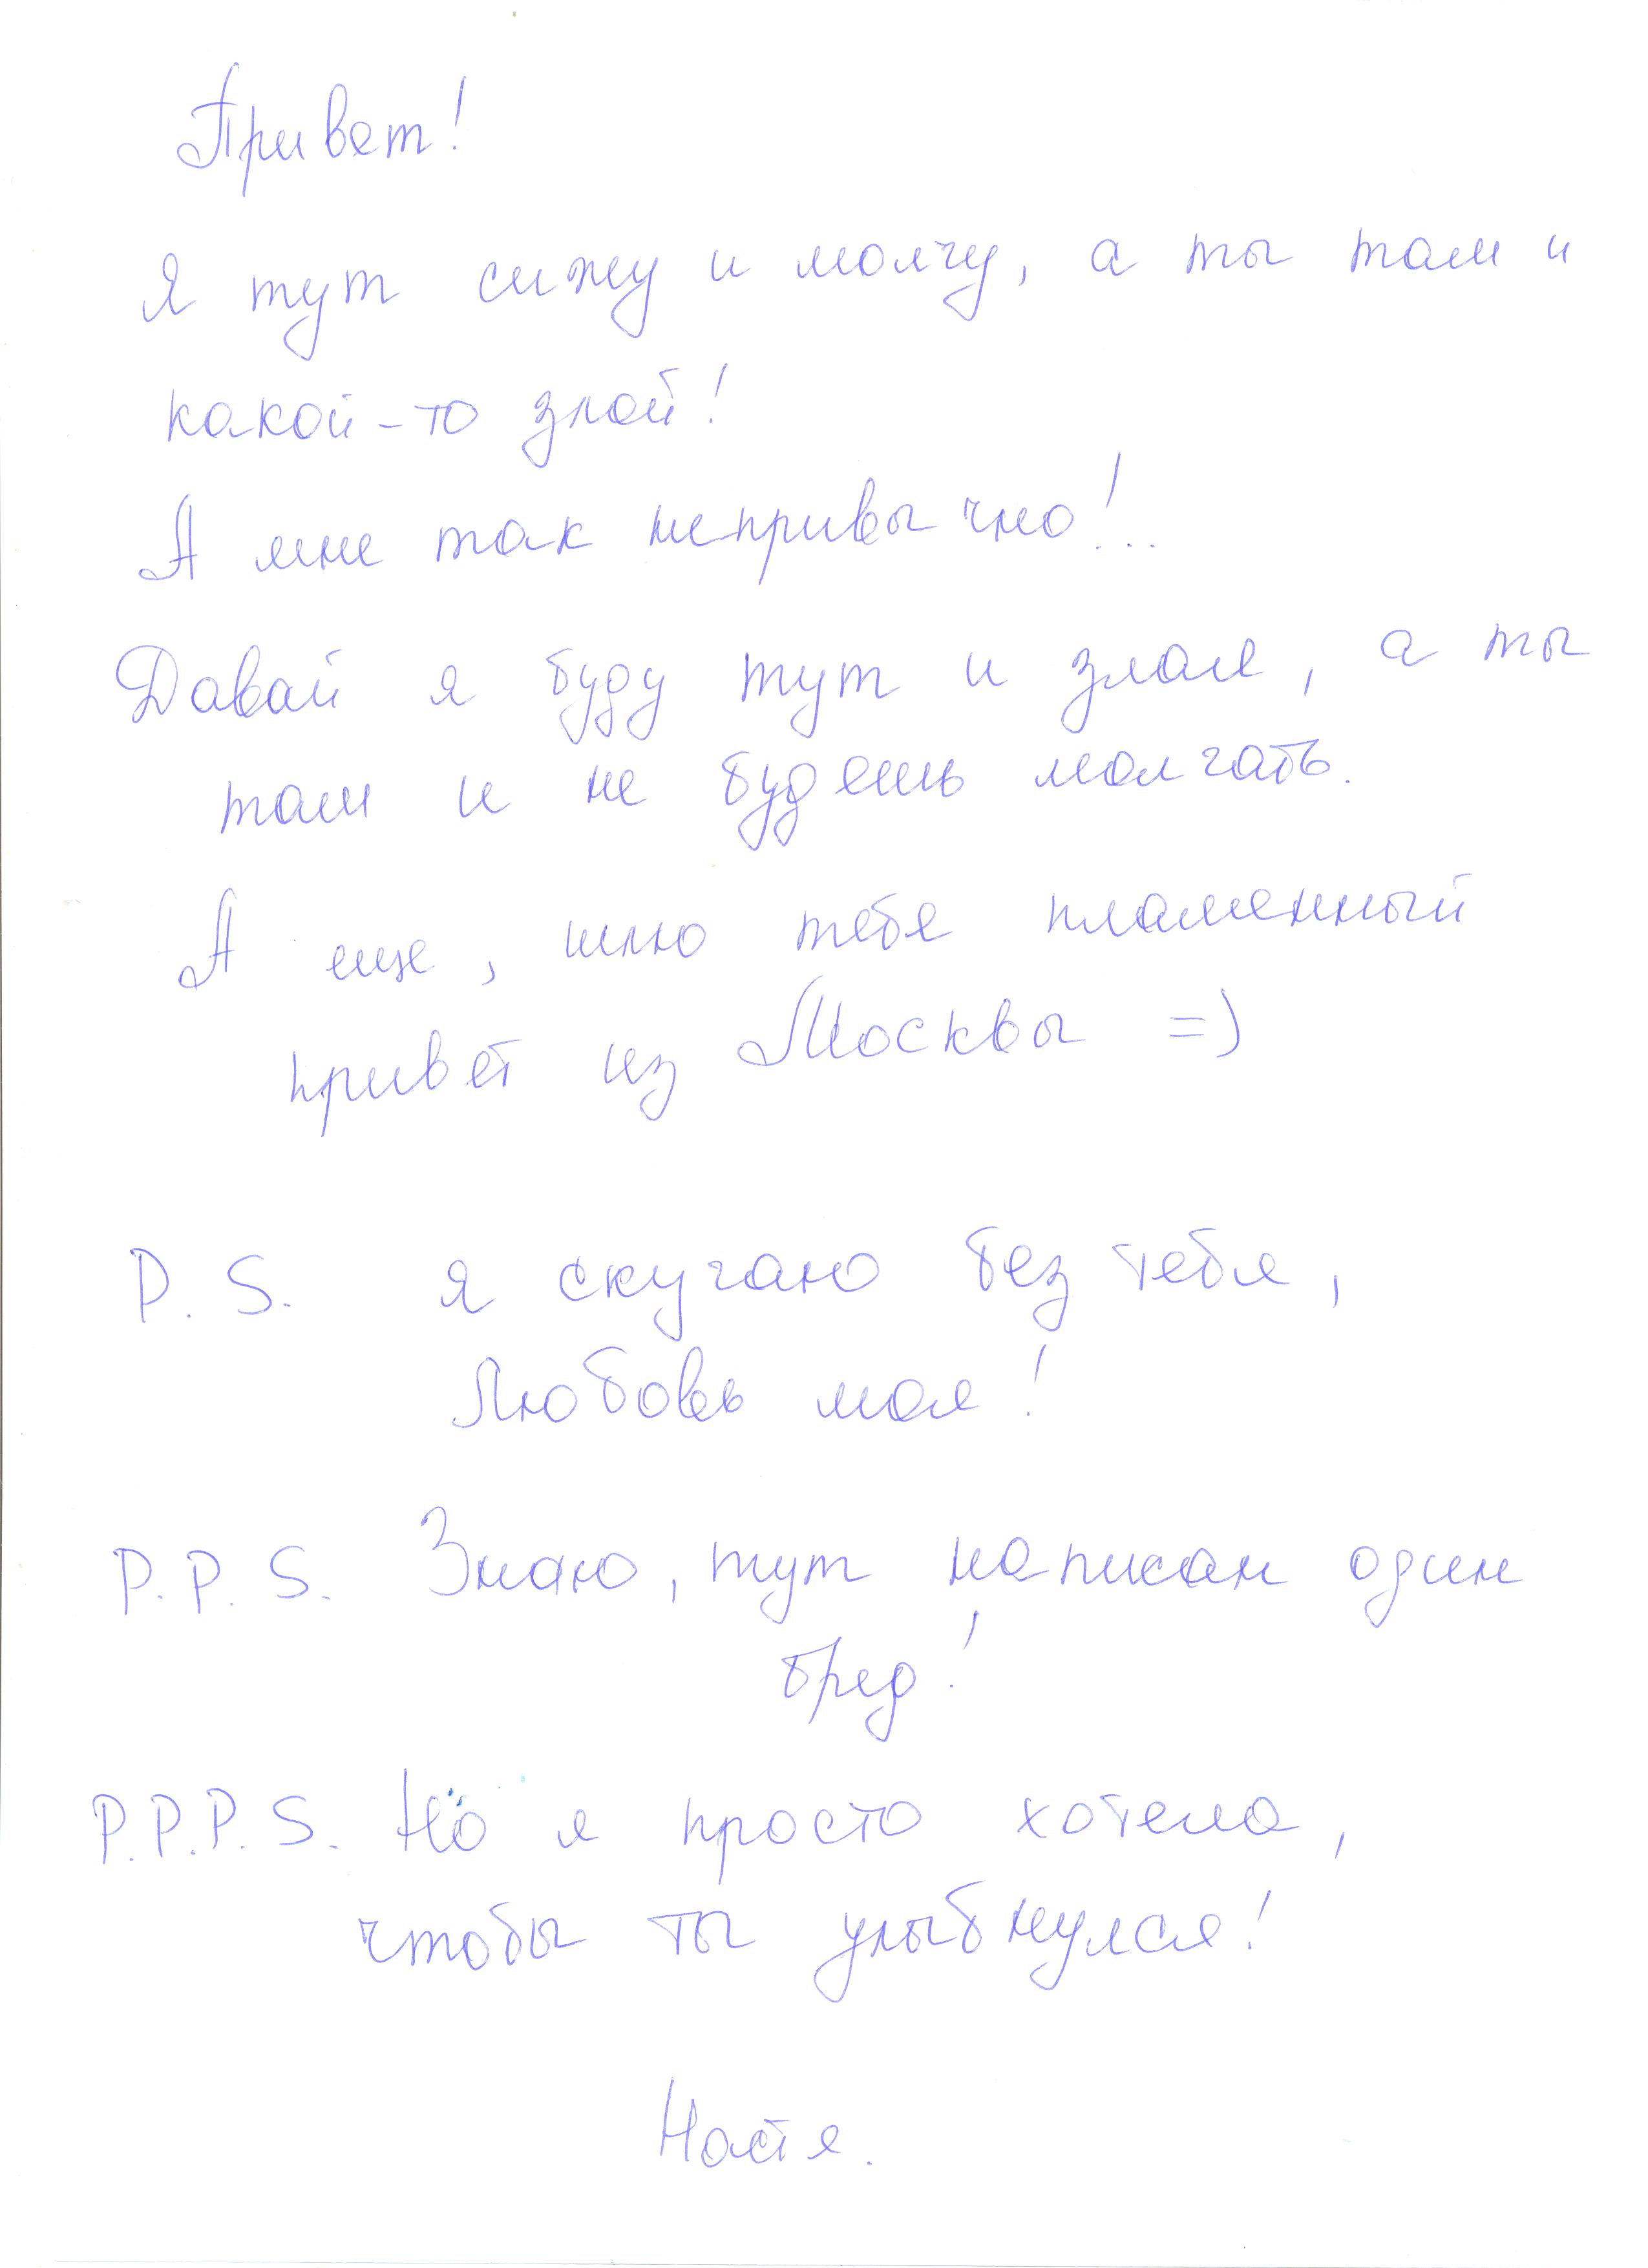 Привет!
Я тут сижу и молчу, а ты там и
какой-то злой!
А мне так непривычно!...
Давай я буду тут и злая, а ты
там и не будешь молчать.
А еще, шлю тебе пламенный
привет из Москвы =)
P.S. я скучаю без тебя,
Любовь моя!
P.P.S. Знаю, тут написан один
бред!
P.P.P.S. Но я просто хотела,
чтобы ты улыбнулся!
Настя.